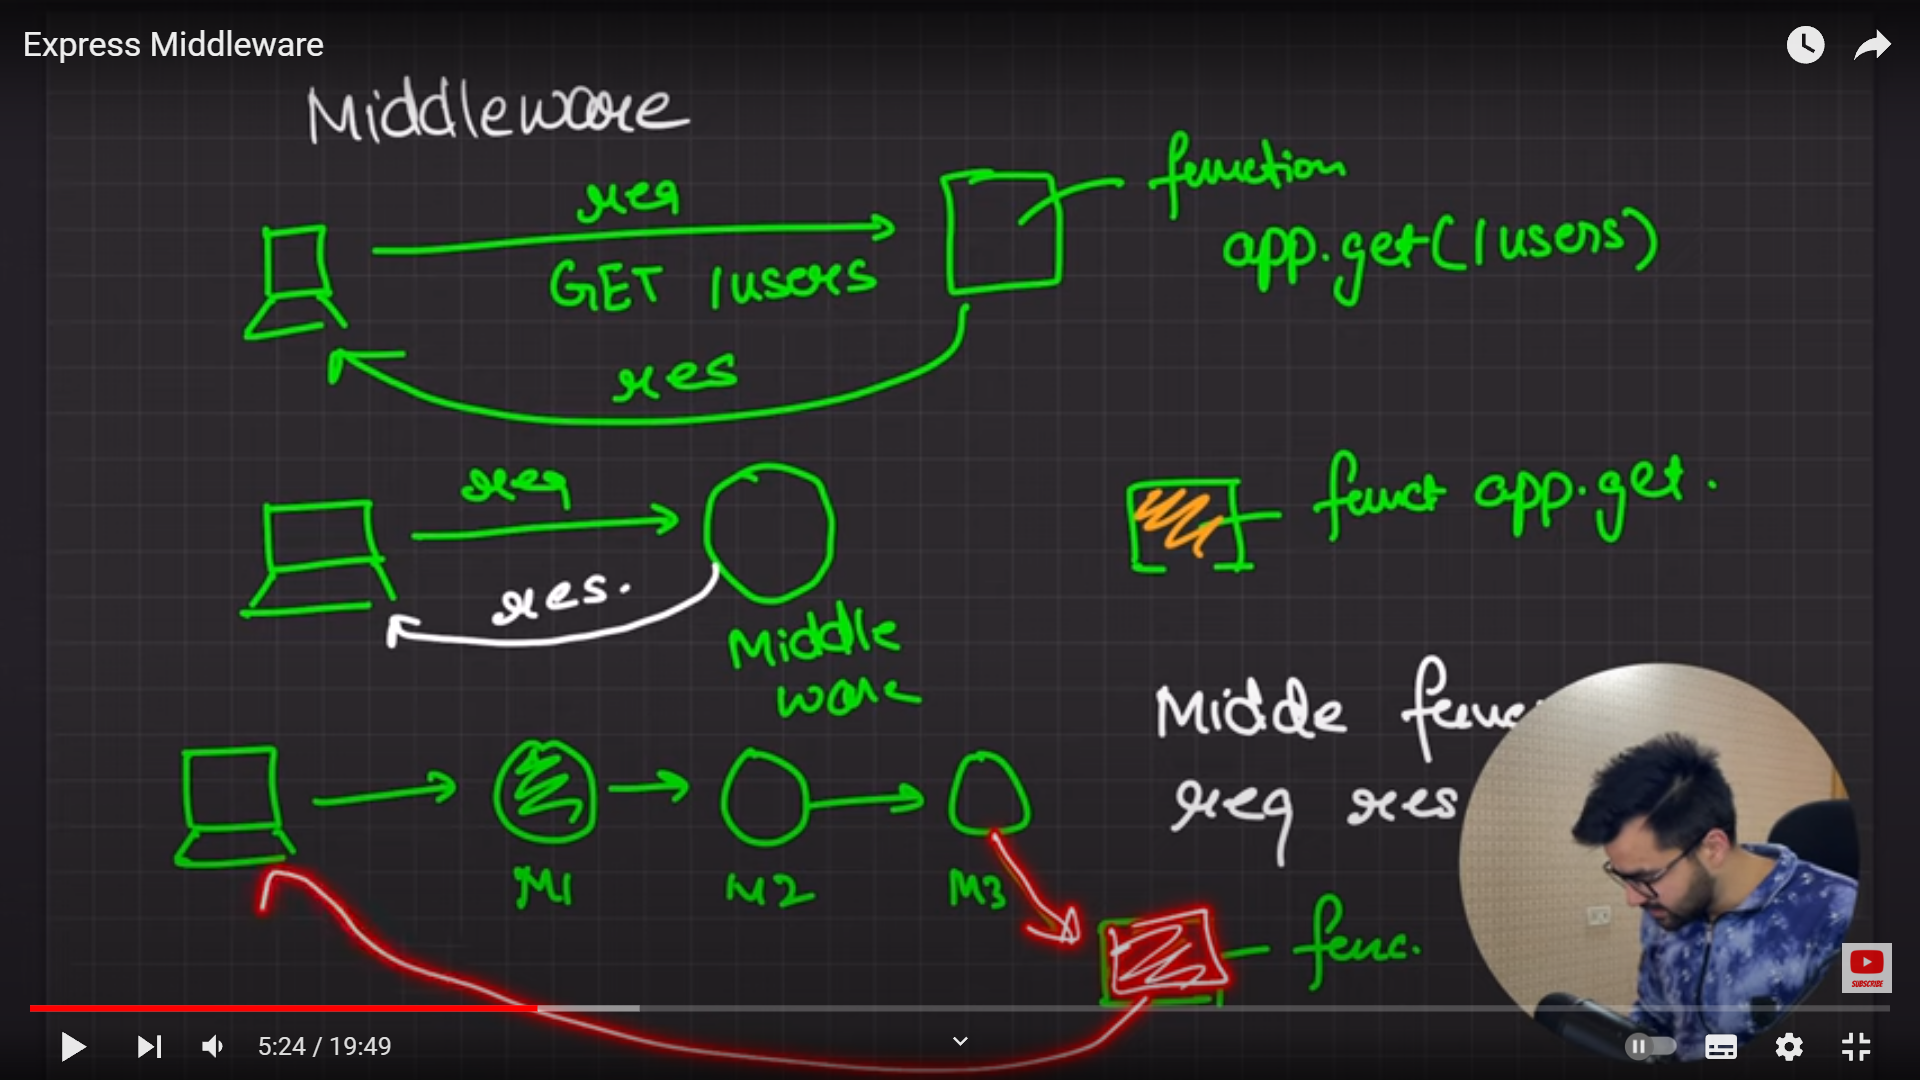 Express Middleware
Middleware
req
GET /users
function
app.get(/users)
res
req
res.
Middle
ware
funct app.get.
Midde func
req res
M1
M2
M3
func.
SUBSCRIBE
5:24 / 19:49